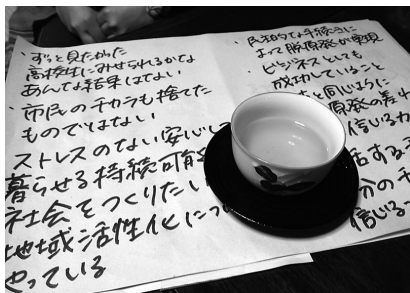 ・ずっと見たかった
高校生にみせられるかな
あんな結果はでない
・市民のチカラも捨てた
ものではない
ストレスのない安心して
暮らせる持続可能
社会をつくりたい
地域活性化につ
やっている
・民主的な手続きに
よって脱原発が実現
・ビジネスとしても
成功していること
と同じように
原発の差
信じる力
活する
分のチ
信じる